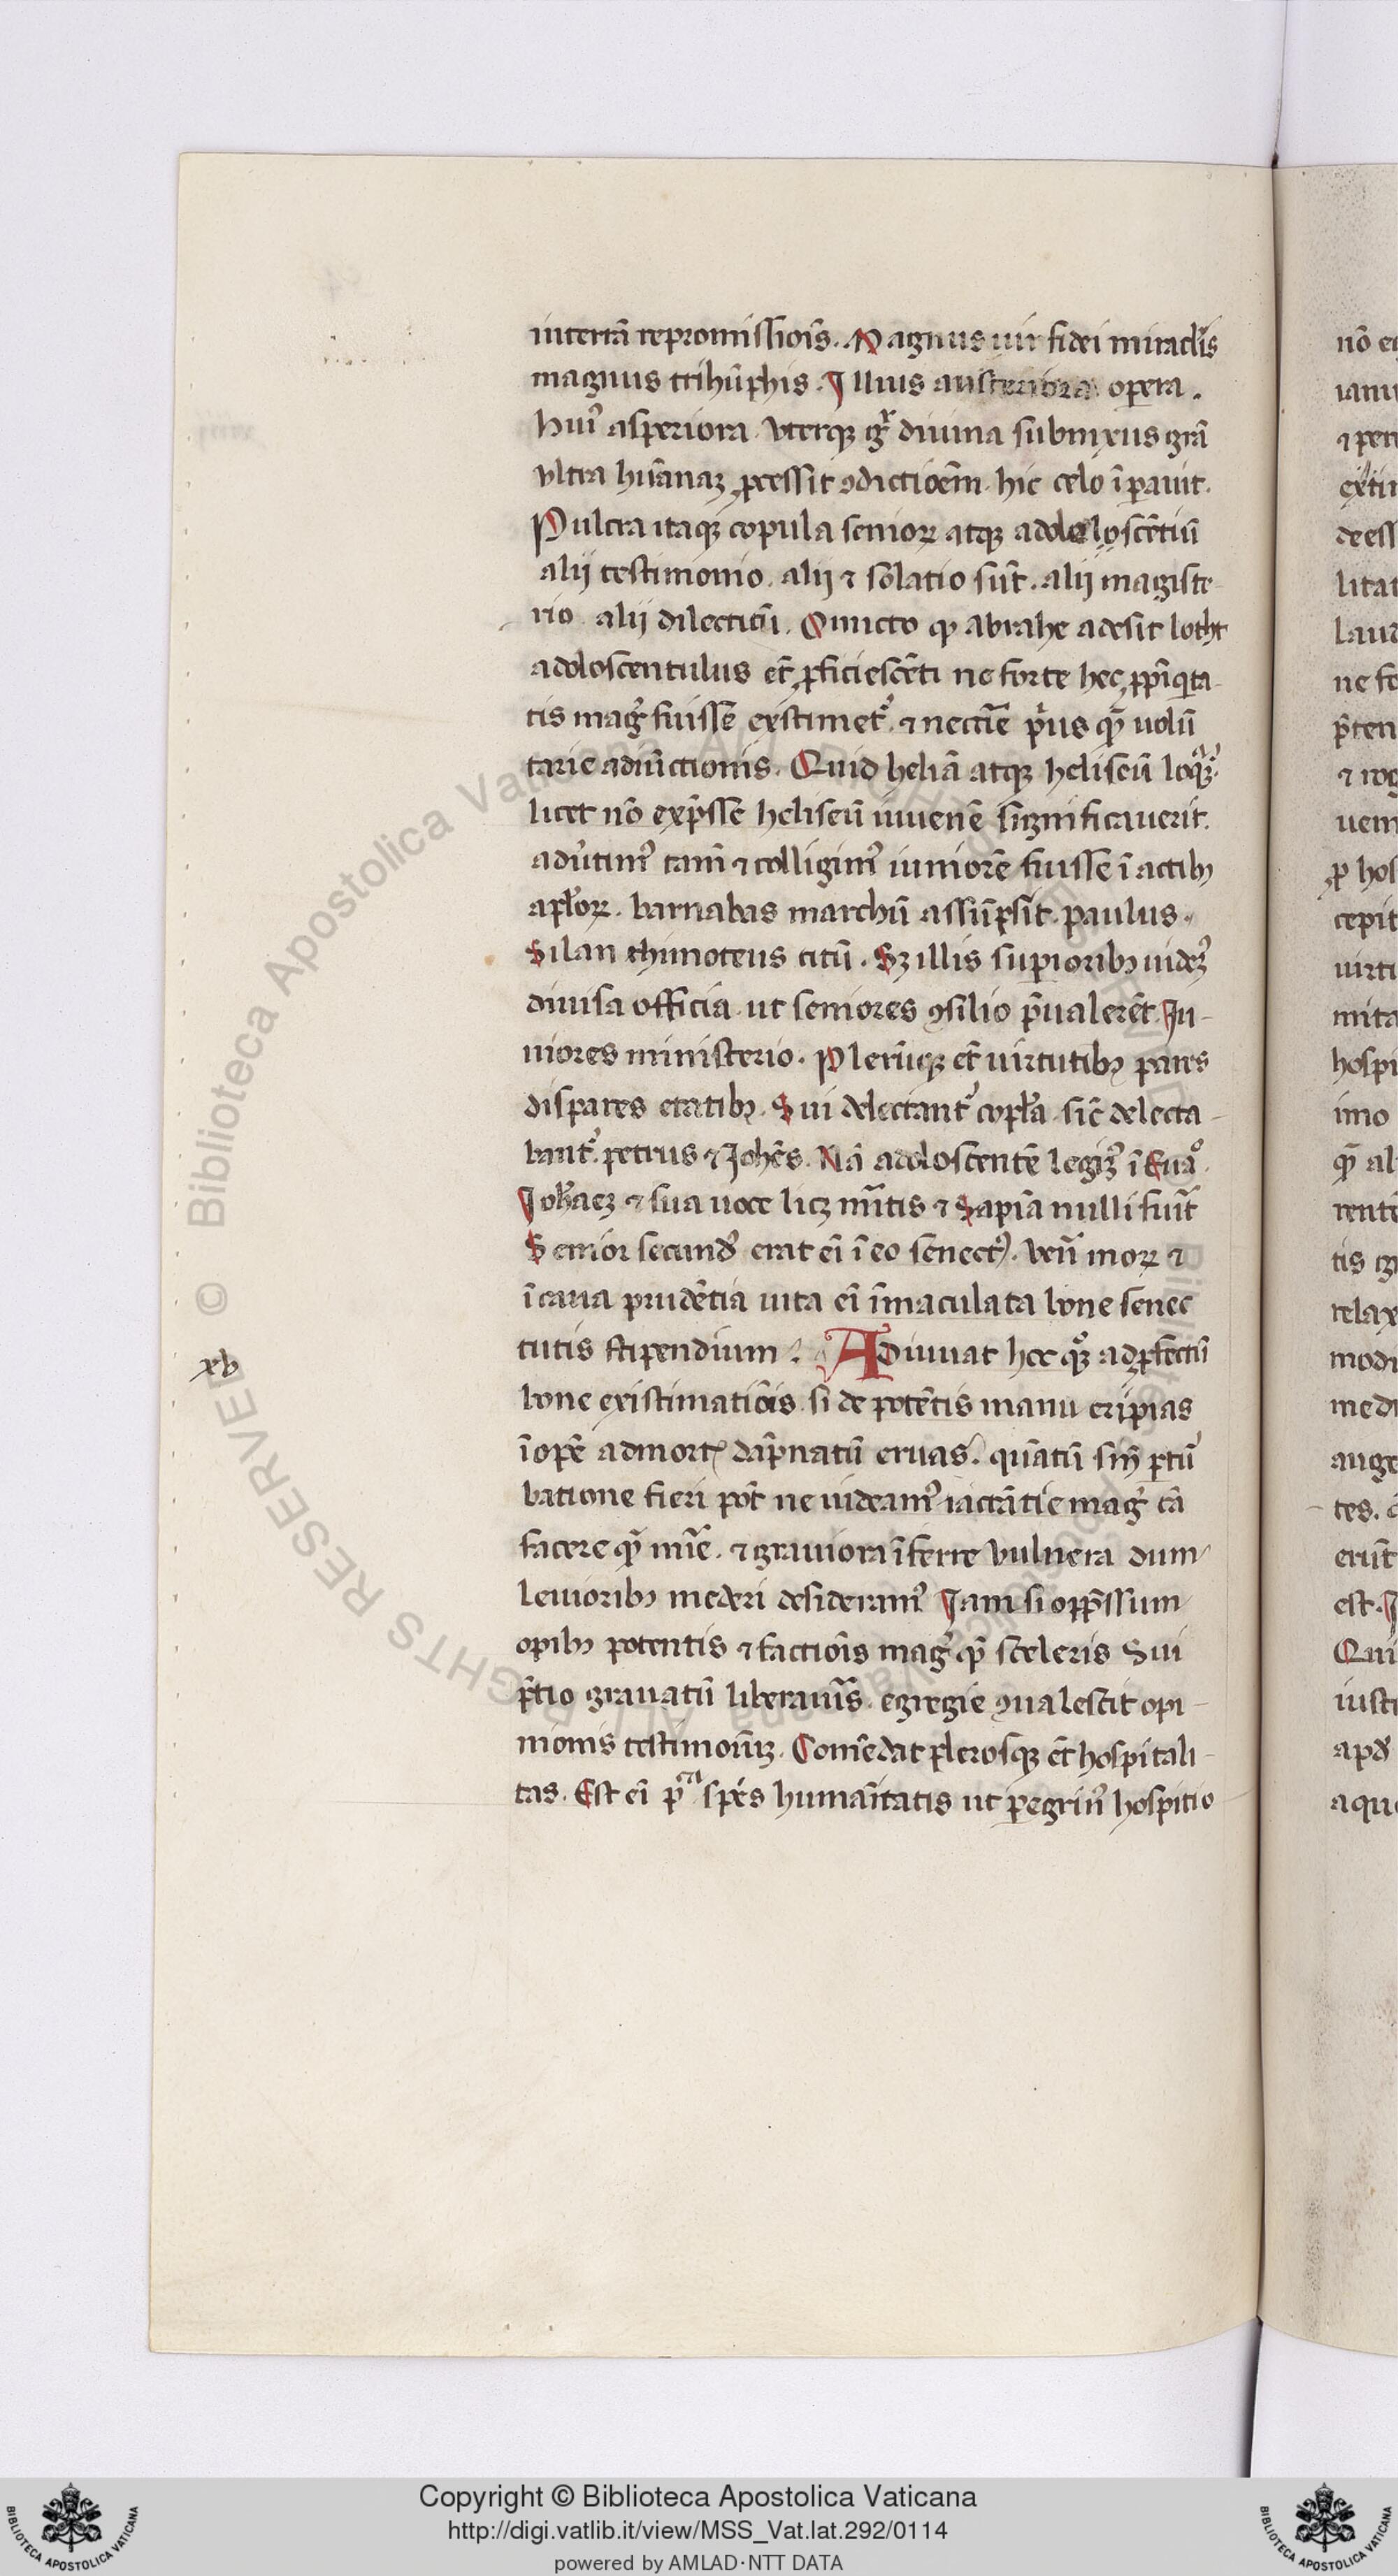 in terrã repromissiõis. Magnus uir fidei miraclis
magnus trihũphis. Illius austeriora opera.
Huiꝰ asperiora vterqꝫ gͬ diuina submixus grã
vltra hũanaꝫ ꝓcessit ꝯdictioẽm. hic celo ĩpauit.
Pulcra itaqꝫ copula senioꝝ atqꝫ adoloscẽtiũ
alij testimonio. alij ⁊ solatio sũt. alij magiste-
rio alij dilectiõi. Omitto qꝙ abrahe adesit lotht
adoloscentulus et̃ ꝓficiescẽti ne forte hec ꝓpĩqita-
tis mag̛ fuisse existimet᷑. ⁊ necc̃ie pͥus qꝫ̃ uolũ
tarie adiũctionis. Quid heliã atqꝫ heliseũ loqͣꝫꝰ.
licet nõ exp̃sse heliseũ iuuenẽ significauerit.
adũtimꝰ tam̃ ⁊ colligimꝰ iuniorẽ fuisse ĩ actibꝫ
apl̃oꝝ. barnabas marchũ assũpsit. paulus.
Silan thimoteus titũ. Sꝫ illis supioribꝫ uideꝫꝰ
diuisa officia ut seniores ꝯsilio p̃ualerẽt. Iu-
niores ministerio. Plerũqꝫ et̃ uirtutibꝫ pares
dispares etatibꝫ. Sui delectant᷑ copl̃a sic̃ delecta-
bant᷑ petrus ⁊ Johẽs. Nã adoloscentẽ legiꝫꝰ ĩ Euãº.
Joh̃aeꝫ ⁊ sua uoce licꝫ mr̃itis ⁊ Sapiã nulli fuit̃
Senior secundꝰ erat eĩ ĩ eo senectꝰ. ven̄ moꝝ ⁊
ĩ cana prudẽtia uita eĩ ĩmaculata bone senec
tutis stipendium. Adiuuat hec qꝫº ad ꝓfectũ
bone existimatiõis. si de potẽtis manu eripias
ĩopẽ ad mortꝫ dãpnatũ eruas. quãtũ sñ ptũ
batione fieri pot̃ ne uideamꝰ iactãtie mag̛ cã
facere qꝫ̃ mĩe. ⁊ grauiora ĩferre vulnera dum
leuioribꝫ mederi desideramꝰ Jam si opp̃ssum
opibꝫ potentis ⁊ factiõis mag̛ qꝫ̃ sceleris Sui
p̃tio grauatũ liberauis̃. egregie ꝯualescit opi-
nionis testimoniũꝫ. Comẽdat plerosqꝫ et̃ hospitali-
tas. Est eĩ p̃ᶜᵃ spẽs humãitatis ut peregrinꝰ hospitio
xv
Copyright © Biblioteca Apostolica Vaticana
http://digi.vatlib.it/view/MSS_Vat.lat.292/0114
powered by AMLAD·NTT DATA